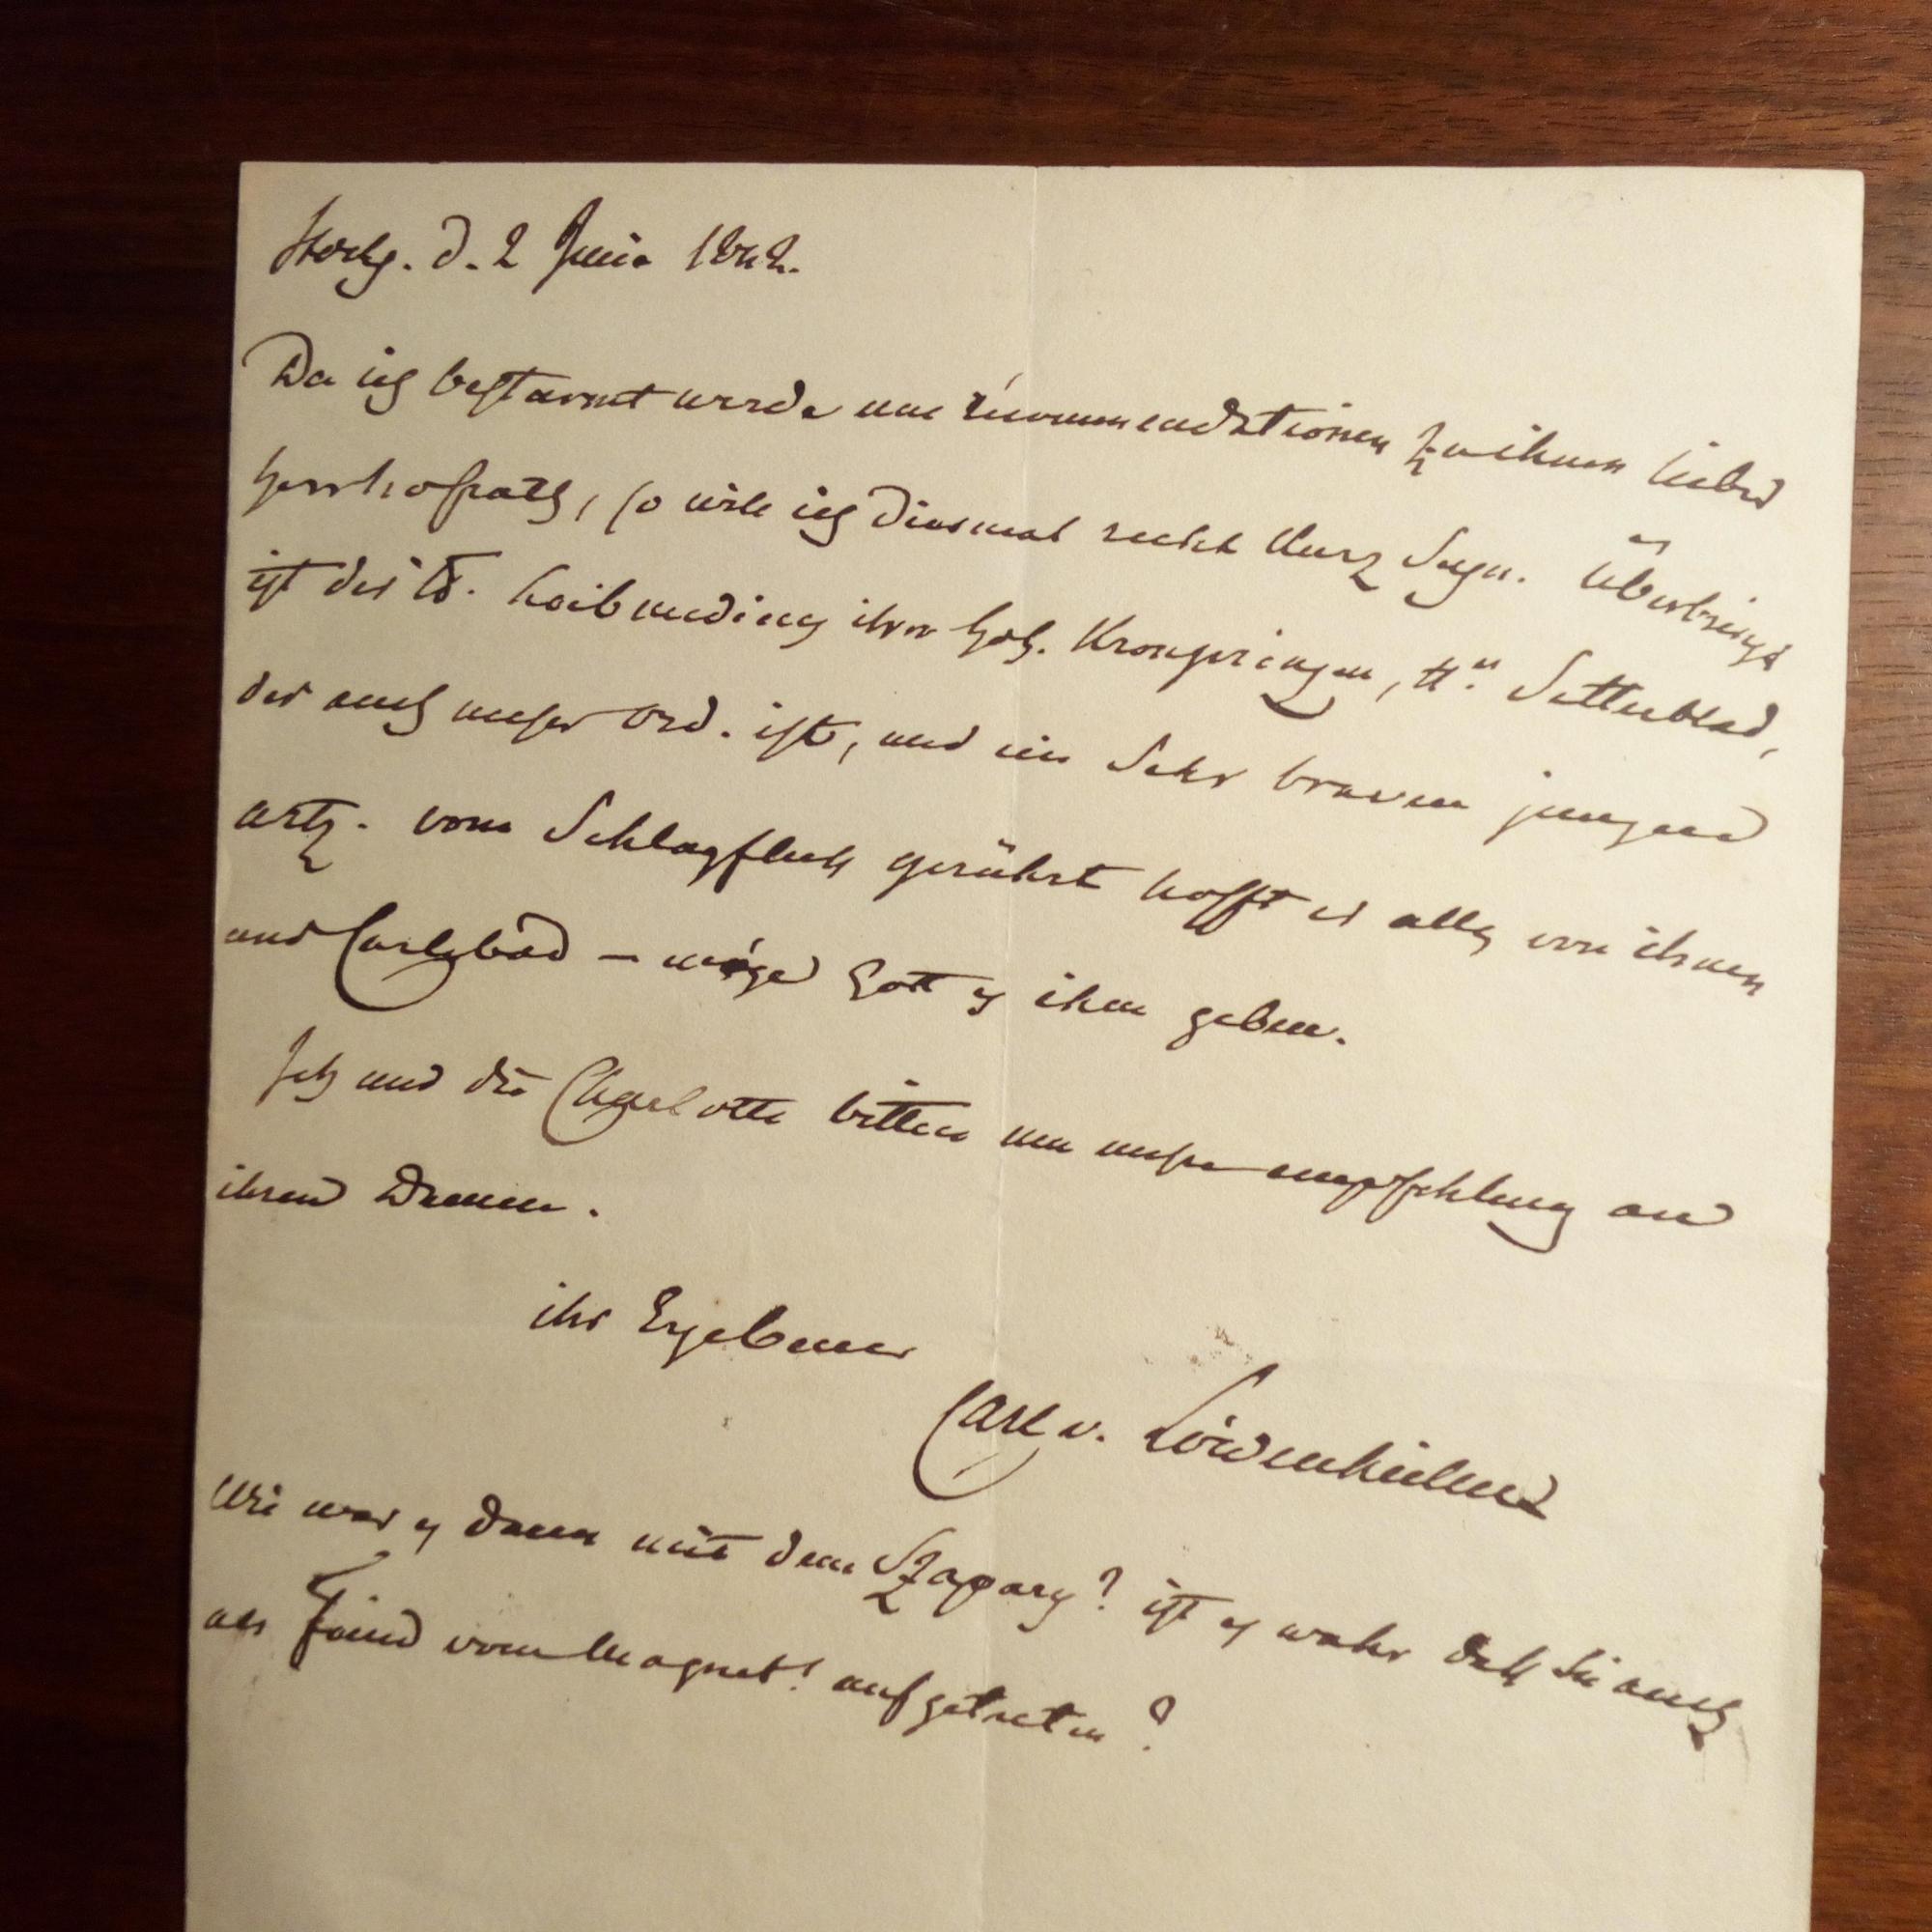 Stockh. d. 2 Junio 1842.
Da ich bestürmt werde um recommendationen zu ihnen lieber
Herr hofrath, so will ich diesmal recht Kurz Seyn. Überbringer
ist der Leibmedicus ihrer Hoh. Kronprinzen, Hrn Setterblad,
der auch unser ist, und ein Sehr braver junger
artz. vom Schlagfluß gerührt hofft er alles von ihnen
und Carlsbad – möge Gott es ihm geben.
Ich und die Charlotte bitten um unsere empfehlung an
ihren Damen.
ihr Ergebener
Carl v. Löwenhielm
Wie war es denn mit dem Szapary? ist es wahr daß Sie auch
als Feind vom Magnet! aufgetreten?